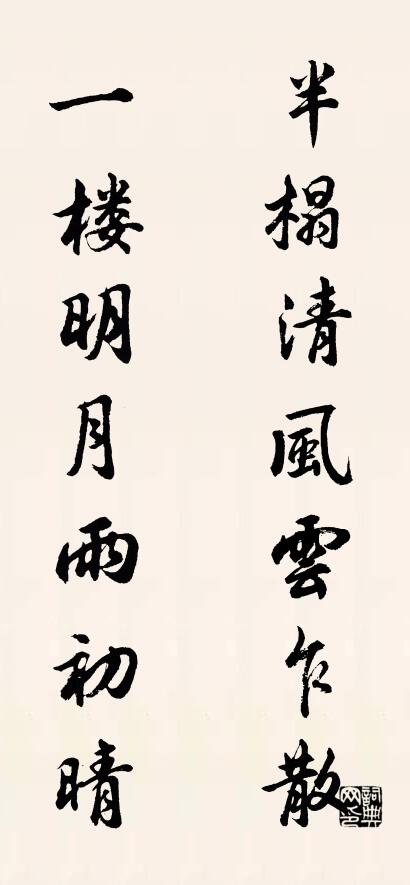 半榻清風雲乍散
一楼明月雨初晴
詞典網印